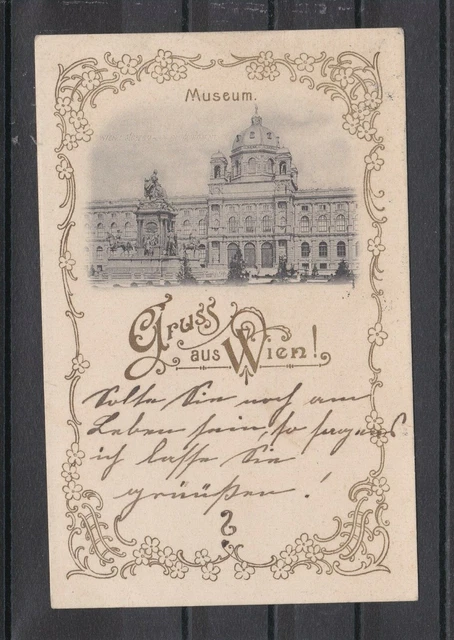 Museum.
Gruss
aus Wien!
Sollte Sie noch am
Leben sein, so sagens
ich lasse Sie
grüüßen!
?